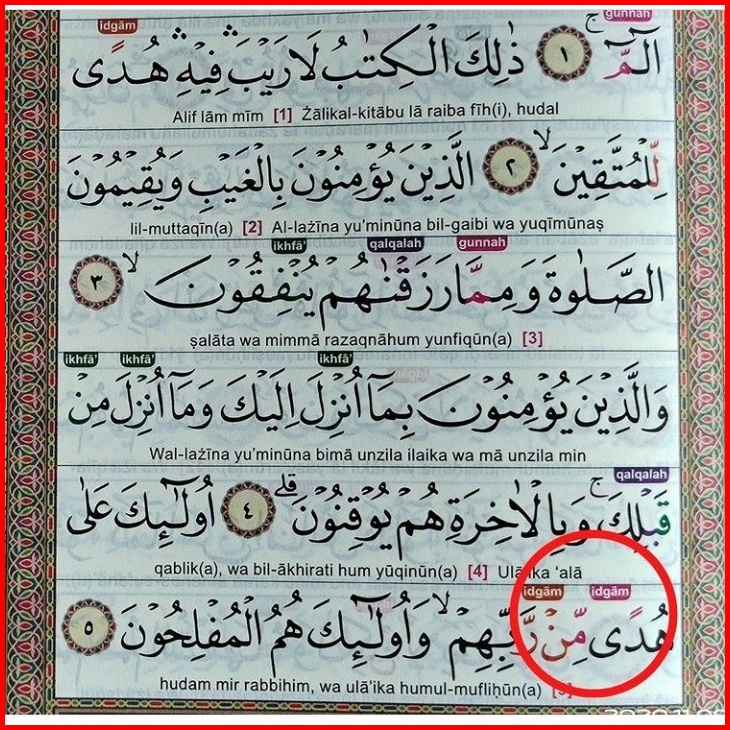 idgām gunnah
الٓـمّٓ ۚ ١ ذٰلِكَ الْكِتٰبُ لَا رَيْبَ ۛ فِيْهِ ۛ هُدًى
Alif lām mīm [1] Żālikal-kitābu lā raiba fīh(i), hudal
لِّلْمُتَّقِيْنَ ۙ ٢ الَّذِيْنَ يُؤْمِنُوْنَ بِالْغَيْبِ وَيُقِيْمُوْنَ
lil-muttaqīn(a) [2] Al-lażīna yu’minūna bil-gaibi wa yuqīmūnaṣ
ikhfā’ qalqalah gunnah
الصَّلٰوةَ وَمِمَّا رَزَقْنٰهُمْ يُنْفِقُوْنَ ۙ ٣
ṣalāta wa mimmā razaqnāhum yunfiqūn(a) [3]
ikhfā’ ikhfā’ ikhfā’
وَالَّذِيْنَ يُؤْمِنُوْنَ بِمَآ اُنْزِلَ اِلَيْكَ وَمَآ اُنْزِلَ مِنْ
Wal-lażīna yu’minūna bimā unzila ilaika wa mā unzila min
qalqalah
قَبْلِكَ ۚ وَبِالْاٰخِرَةِ هُمْ يُوْقِنُوْنَ ۗ ٤ اُولٰۤىِٕكَ عَلٰى
qablik(a), wa bil-ākhirati hum yūqinūn(a) [4] Ulā'ika ‘alā
idgām idgām
هُدًى مِّنْ رَّبِّهِمْ ۙ وَاُولٰۤىِٕكَ هُمُ الْمُفْلِحُوْنَ ٥
hudam mir rabbihim, wa ulā’ika humul-mufliḥūn(a) [5]